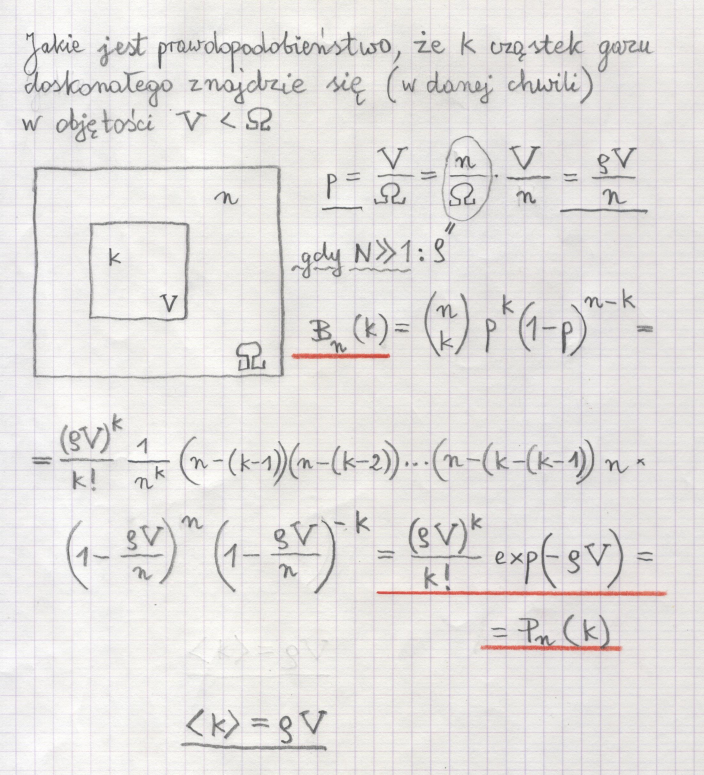 Jakie jest prawdopodobieństwo, że k cząstek gazu
doskonałego znajdzie się (w danej chwili)
w objętości V < Ω
n
k
V
Ω
p = V/Ω = n/Ω · V/n = ϱV/n
gdy N≫1: ϱ
B_n(k) = (n k) p^k (1-p)^{n-k} =
= (ϱV)^k/k! 1/n^k (n-(k-1))(n-(k-2))...(n-(k-(k-1)) n ×
(1 - ϱV/n)^n (1 - ϱV/n)^{-k} = (ϱV)^k/k! exp(-ϱV) =
= P_n(k)
<k> = ϱV